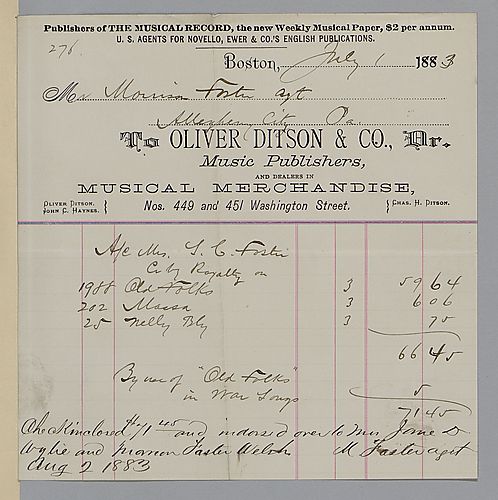 Publishers of THE MUSICAL RECORD, the new Weekly Musical Paper, $2 per annum.
U. S. AGENTS FOR NOVELLO, EWER & CO.'S ENGLISH PUBLICATIONS.
276
Boston, July 1 1883
Mr Morrison Foster agt
Allegheny City Pa.
To OLIVER DITSON & CO., Dr.
Music Publishers,
AND DEALERS IN
MUSICAL MERCHANDISE,
OLIVER DITSON. Nos. 449 and 451 Washington Street. CHAS. H. DITSON.
JOHN C. HAYNES.
A/c Mrs. S. C. Foster
Royalty on
1988 Old Folks 3 59 64
202 Massa 3 6 06
25 Nelly Bly 3 75
66 45
By use of "Old Folks"
in War Songs 5
71 45
Check inclosed $71 45 and indorsed over to Mrs Jane D
Wylie and Marion Foster Welsh M. Foster agt
Aug 2 1883